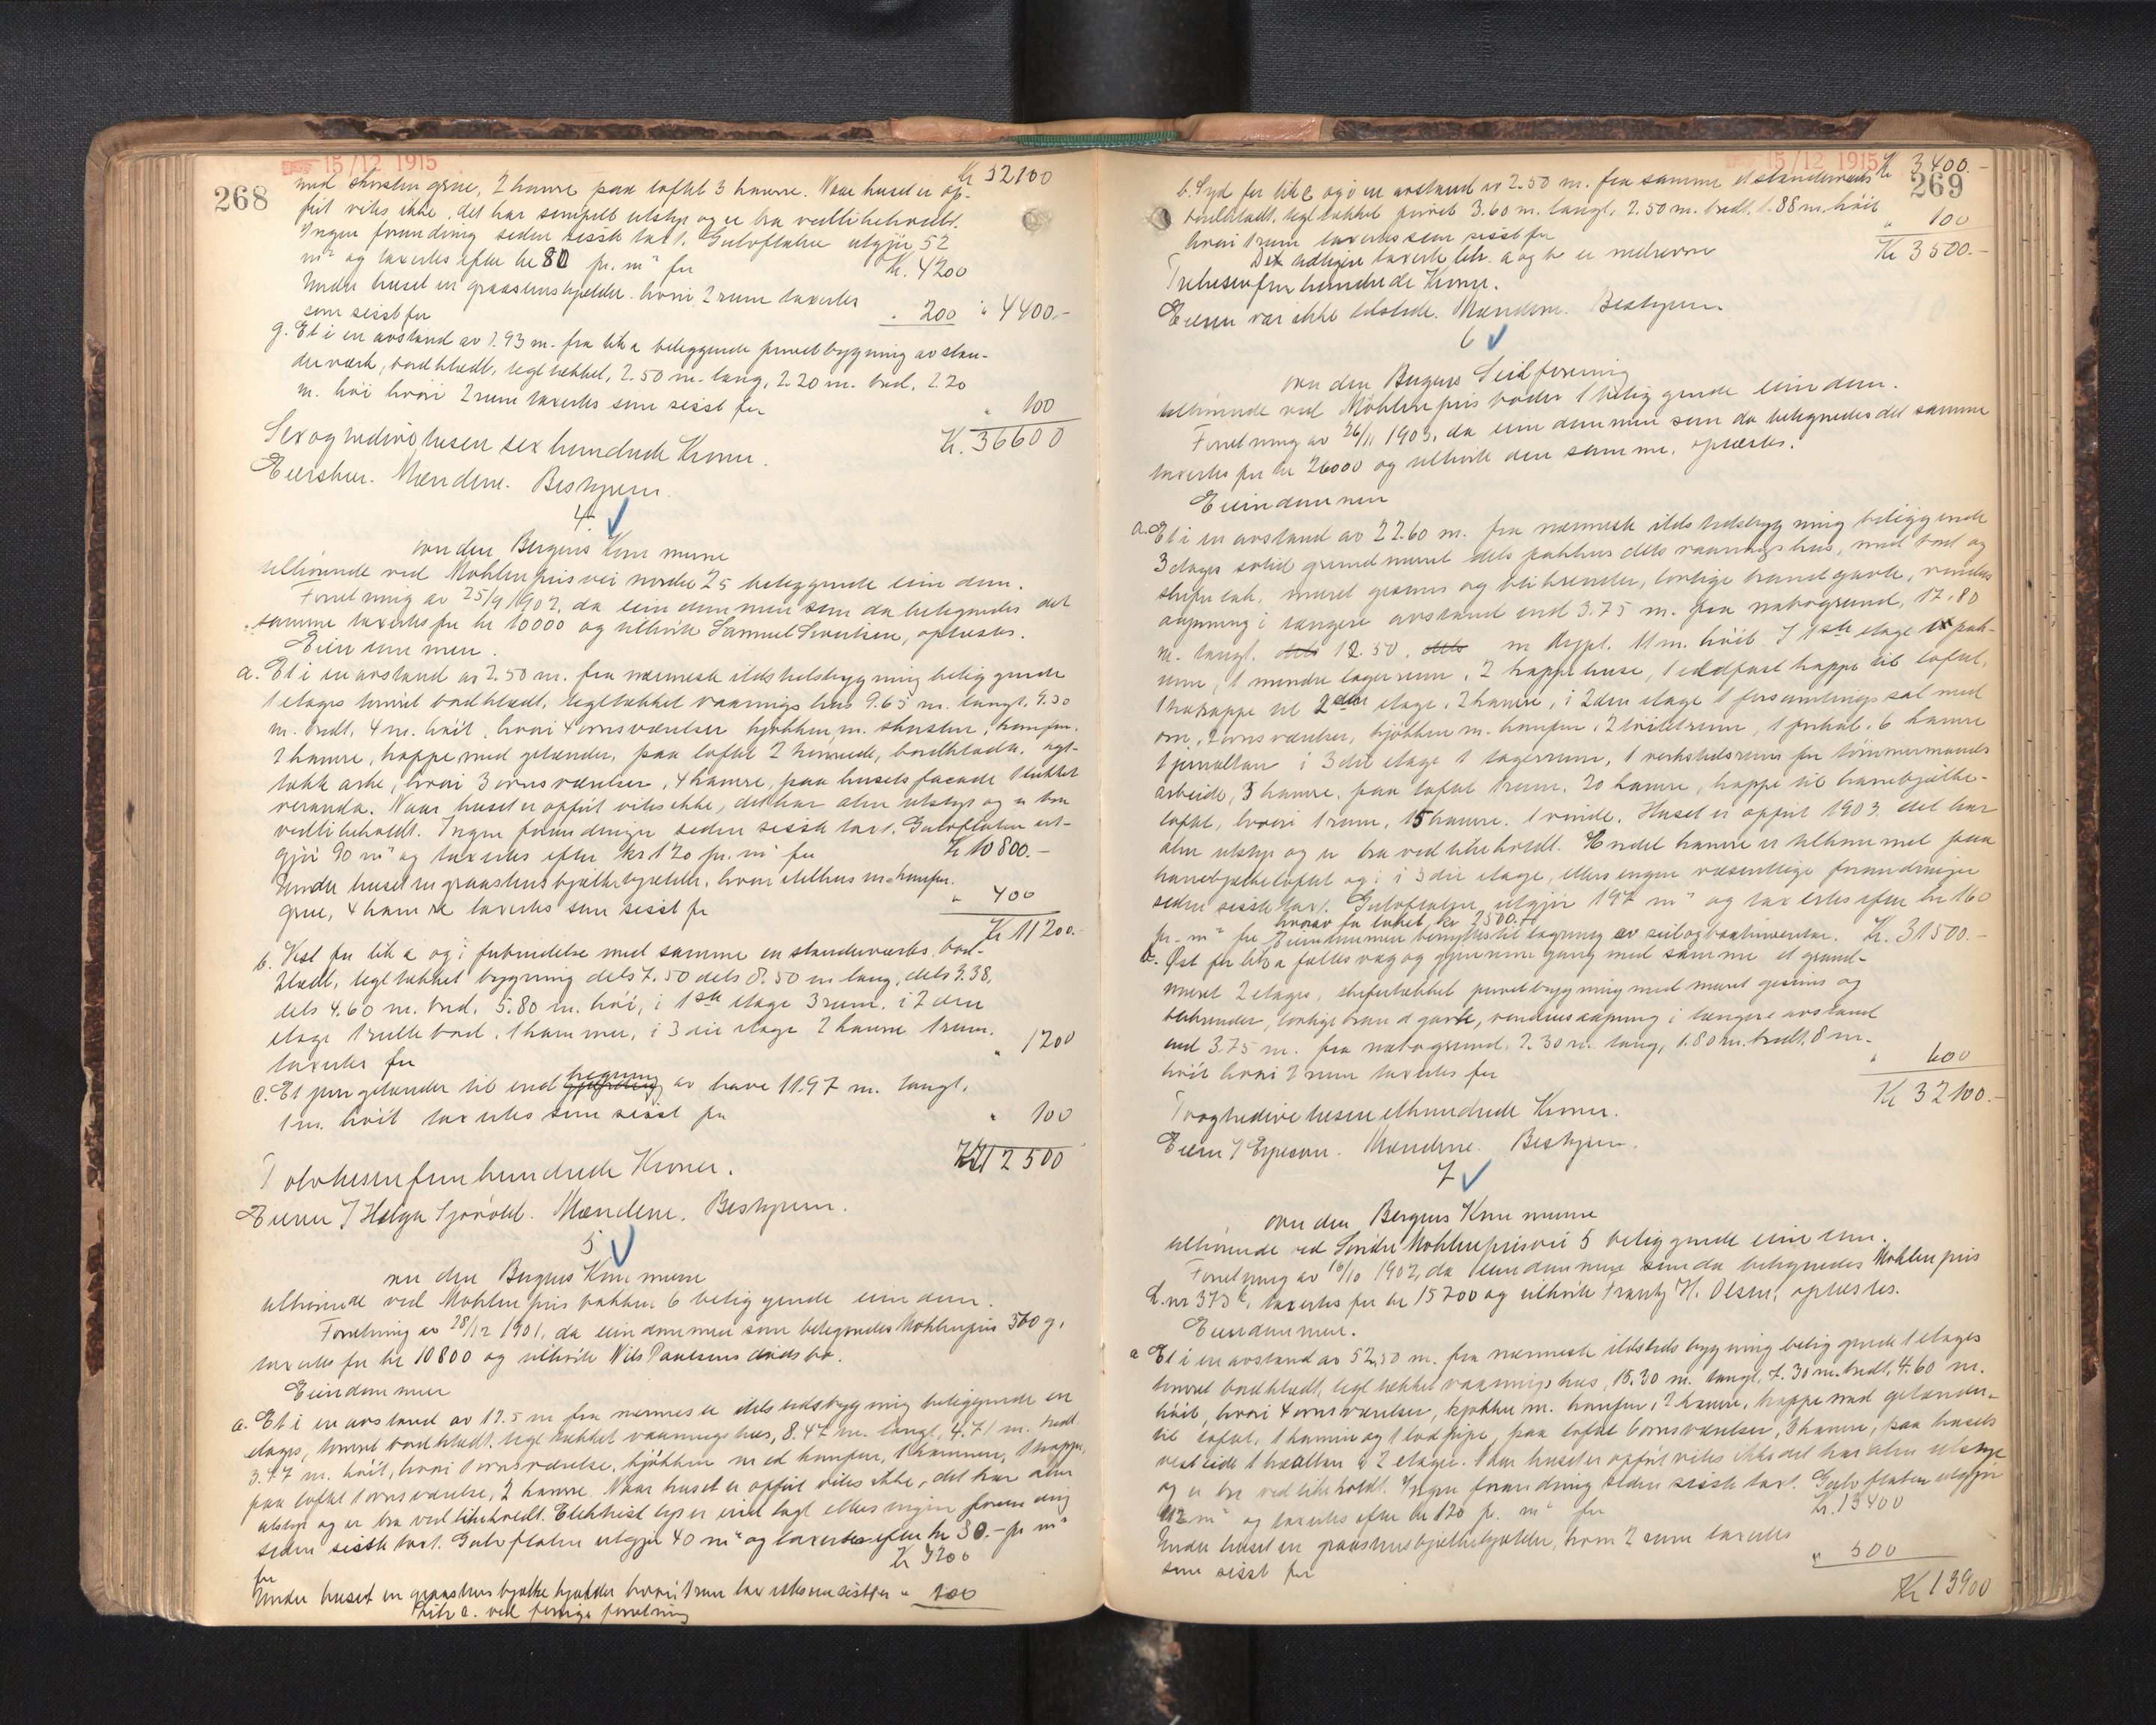 15/12 1915
268
Kr 32100
med skorsten grue, 2 kamre paa loftet 3 kamre. Naar huset er op-
ført vites ikke, det har simpelt utstyr og er bra vedlikeholdt.
Ingen forandring siden sisste taxt. Gulvflaten utgjør 52
m² og taxertes efter kr 80 pr. m² for Kr. 4200
Under huset en graastenskjelder hvori 2 rum taxertes
som sisst for " 200 " 4400.-
g. Et i en avstand av 1.93 m. fra litr a beliggende privetbygning av sten-
derverk, bordklædt, tegltækket, 2.50 m. lang, 2.20 m. bred, 2.20
m. høi hvori 2 rum taxertes som sisst for " 100
Kr. 36600
Sexogtredive tusen sex hundrede Kroner.
Eiersken. Mændene. Bestyreren.
4.
over den Bergens Kommune
tilhørende ved Møhlenprisvei nordre 25 beliggende eiendom.
Forretning av 25/9 1902, da eiendommen som da betegnedes det
samme taxertes for kr 10000 og tilhørte Samuel Severtsen, oplæstes.
Eiendommen.
a. Et i en avstand av 2.50 m. fra nærmeste ildstedsbygning beliggende
1 etages tømret bordklædt, tegltækket vaaningshus 9.65 m. langt, 9.30
m. bredt, 4 m. høit, hvori 4 ovnsværelser kjøkken m. skorsten, komfur,
2 kamre, trappe med gelænder, paa loftet 2 tømrede, bordklædte, tegl-
tækk arke, hvori 3 ovnsværelser, 4 kamre, paa husets facade 1 lukket
veranda. Naar huset er opført vites ikke, det har alm utstyr og er bra
vedlikeholdt. Ingen forandringer siden sisste taxt. Gulvflaten ut-
gjør 90 m² og taxertes efter kr 120 pr. m² for Kr 10800.-
Under huset en graastensbjelkekjelder, hvori ildhus m. komfur,
grue, 4 kamre taxertes som sisst for " 400
Kr 11200.-
b. Vest for litr a og i forbindelse med samme en stenderverks, bord-
klædt, tegltækket bygning dels 7.50 dels 8.50 m lang, dels 3.38,
dels 4.60 m. bred, 5.80 m. høi, i 1ste etage 3 rum, i 2den
etage 1 rullebod, 1 kammer, i 3die etage 2 kamre 1 rum.
taxertes for " 1200
c. Et jerngelænder til indhegning av have 11.97 m. langt,
1 m. høit taxertes som sisst for " 100
Kr 12500
Tolvtusenfemhundrede Kroner.
Eieren / Helga Sjøvold. Mændene. Bestyreren.
5
over den Bergens Kommune
tilhørende ved Møhlenpris bakken 6 beliggende eiendom.
Forretning av 28/12 1901, da eiendommen som betegnedes Møhlenpris 500 g,
taxertes for kr 10800 og tilhørte Nils Paulsens dødsbo.
Eiendommen
a. Et i en avstand av 12.5 m fra nærmeste ildstedsbygning beliggende en
etages, tømret bordklædt tegltækket vaaningshus, 8.47 m. langt, 4.71 m. bredt
3.77 m. høit, hvori 1 ovnsværelse, kjøkken med komfur, 1 kammer, 1 trappe,
paa loftet 1 ovnsværelse, 2 kamre. Naar huset er opført vites ikke, det har alm
utstyr og er bra vedlikeholdt. Elektrisk lys er indlagt ellers ingen forandring
siden sisste taxt. Gulvflaten utgjør 40 m² og taxertes efter kr 80.- pr m²
for Kr 3200
Under huset en graastens bjelkekjelder hvori 1 rum taxertes som sisst for " 200
litr c. ved forrige forretning
15/12 1915
269
Kr 3400.-
b. Syd for litr a og i en avstand av 2.50 m. fra samme et stenderverks
bordklædt, tegltækket privet 3.60 m. langt, 2.50 m. bredt, 1.88 m. høit
hvori 1 rum taxertes som sisst for " 100
Det tidligere taxerte litr. a og b er nedrevne Kr 3500.-
Tretusenfemhundrede Kroner.
Eieren var ikke tilstede. Mændene. Bestyreren.
6
over den Bergens Seilforening
tilhørende ved Møhlenpris bøder 1 beliggende eiendom.
Forretning av 26/11 1903, da eiendommen som da betegnedes det samme
taxertes for kr 26000 og tilhørte den samme, oplæstes.
Eiendommen
a. Et i en avstand av 22.60 m. fra nærmeste ildstedsbygning beliggende
3 etages solid grundmuret dels pakhus dels vaaningshus, med bord og
skifer tak, muret gesims og blikrender, lovlige brandgavle, vindus
aapning i længere avstand end 3.75 m. fra nabogrund, 17.80
m. langt, 12.50 m drypt. 11 m. høit. I 1ste etage pak-
rum, 1 mindre lagerrum, 2 trappehuse, 1 ildfast trappe til loftet,
1 trætrappe til 2den etage, 2 kamre, i 2den etage 1 forsamlingssal med
ovn, 2 ovnsværelser, kjøkken m. komfur, 2 toiletrum, 1 forhal, 6 kamre
1 jernaltan i 3die etage 1 lagerrum, 1 verkstedsrum for tømmermands
arbeide, 3 kamre, paa loftet 1 rum, 20 kamre, trappe til hanebjælke-
loftet, hvori 1 rum, 15 kamre. 1 vinde. Huset er opført 1903. det har
alm utstyr og er bra vedlikeholdt. Endel kamre er tilkommet paa
hanebjelkeloftet og i 3die etage, ellers ingen væsentlige forandringer
siden sisste taxt. Gulvflaten utgjør 197 m² og taxertes efter kr 160
pr. m² for hvorav for taket kr 2500.-
Eiendommen benyttes til lagring av seil og baatinventar. Kr. 31500.-
b. Øst for litr a fælles væg og gjennemgang med samme et grund-
muret 2 etages, skifertækket privetbygning med muret gesims og
blikrender, lovlige brandgavle, vindusaapning i længere avstand
end 3.75 m. fra nabogrund. 2.30 m. lang, 1.80 m. bredt, 8 m.
høit hvori 2 rum taxertes for " 600
Kr 32100.-
Toogtredive tusen ethundrede Kroner.
Eieren / Mændene. Bestyreren.
7
over den Bergens Kommune
tilhørende ved Søndre Møhlenprisvei 5 beliggende eiendom.
Forretning av 16/10 1902, da eiendommen som da betegnedes Møhlenpris
L.nr 373, taxertes for kr 15200 og tilhørte Frantz H. Olsen, oplæstes.
Eiendommen.
a Et i en avstand av 52.50 m. fra nærmeste ildstedsbygning beliggende 1 etages
tømret bordklædt, tegltækket vaaningshus, 15.30 m. langt, 7.30 m. bredt, 4.60 m.
høit, hvori 4 ovnsværelser, kjøkken m. komfur, 2 kamre, trappe med gelænder
til loftet, 1 kamin og 1 lodpipe, paa loftet 6 ovnsværelser, 3 kamre, paa husets
vestside 1 træaltan i 2 etager. Naar huset er opført vites ikke det har alm utstyr
og er bra vedlikeholdt. Ingen forandring siden sisste taxt. Gulvflaten utgjør
112 m² og taxertes efter kr 120 pr. m² for Kr. 13400
Under huset en graastensbjælkekjelder, hvori 2 rum taxertes
som sisst for " 500
Kr 13900